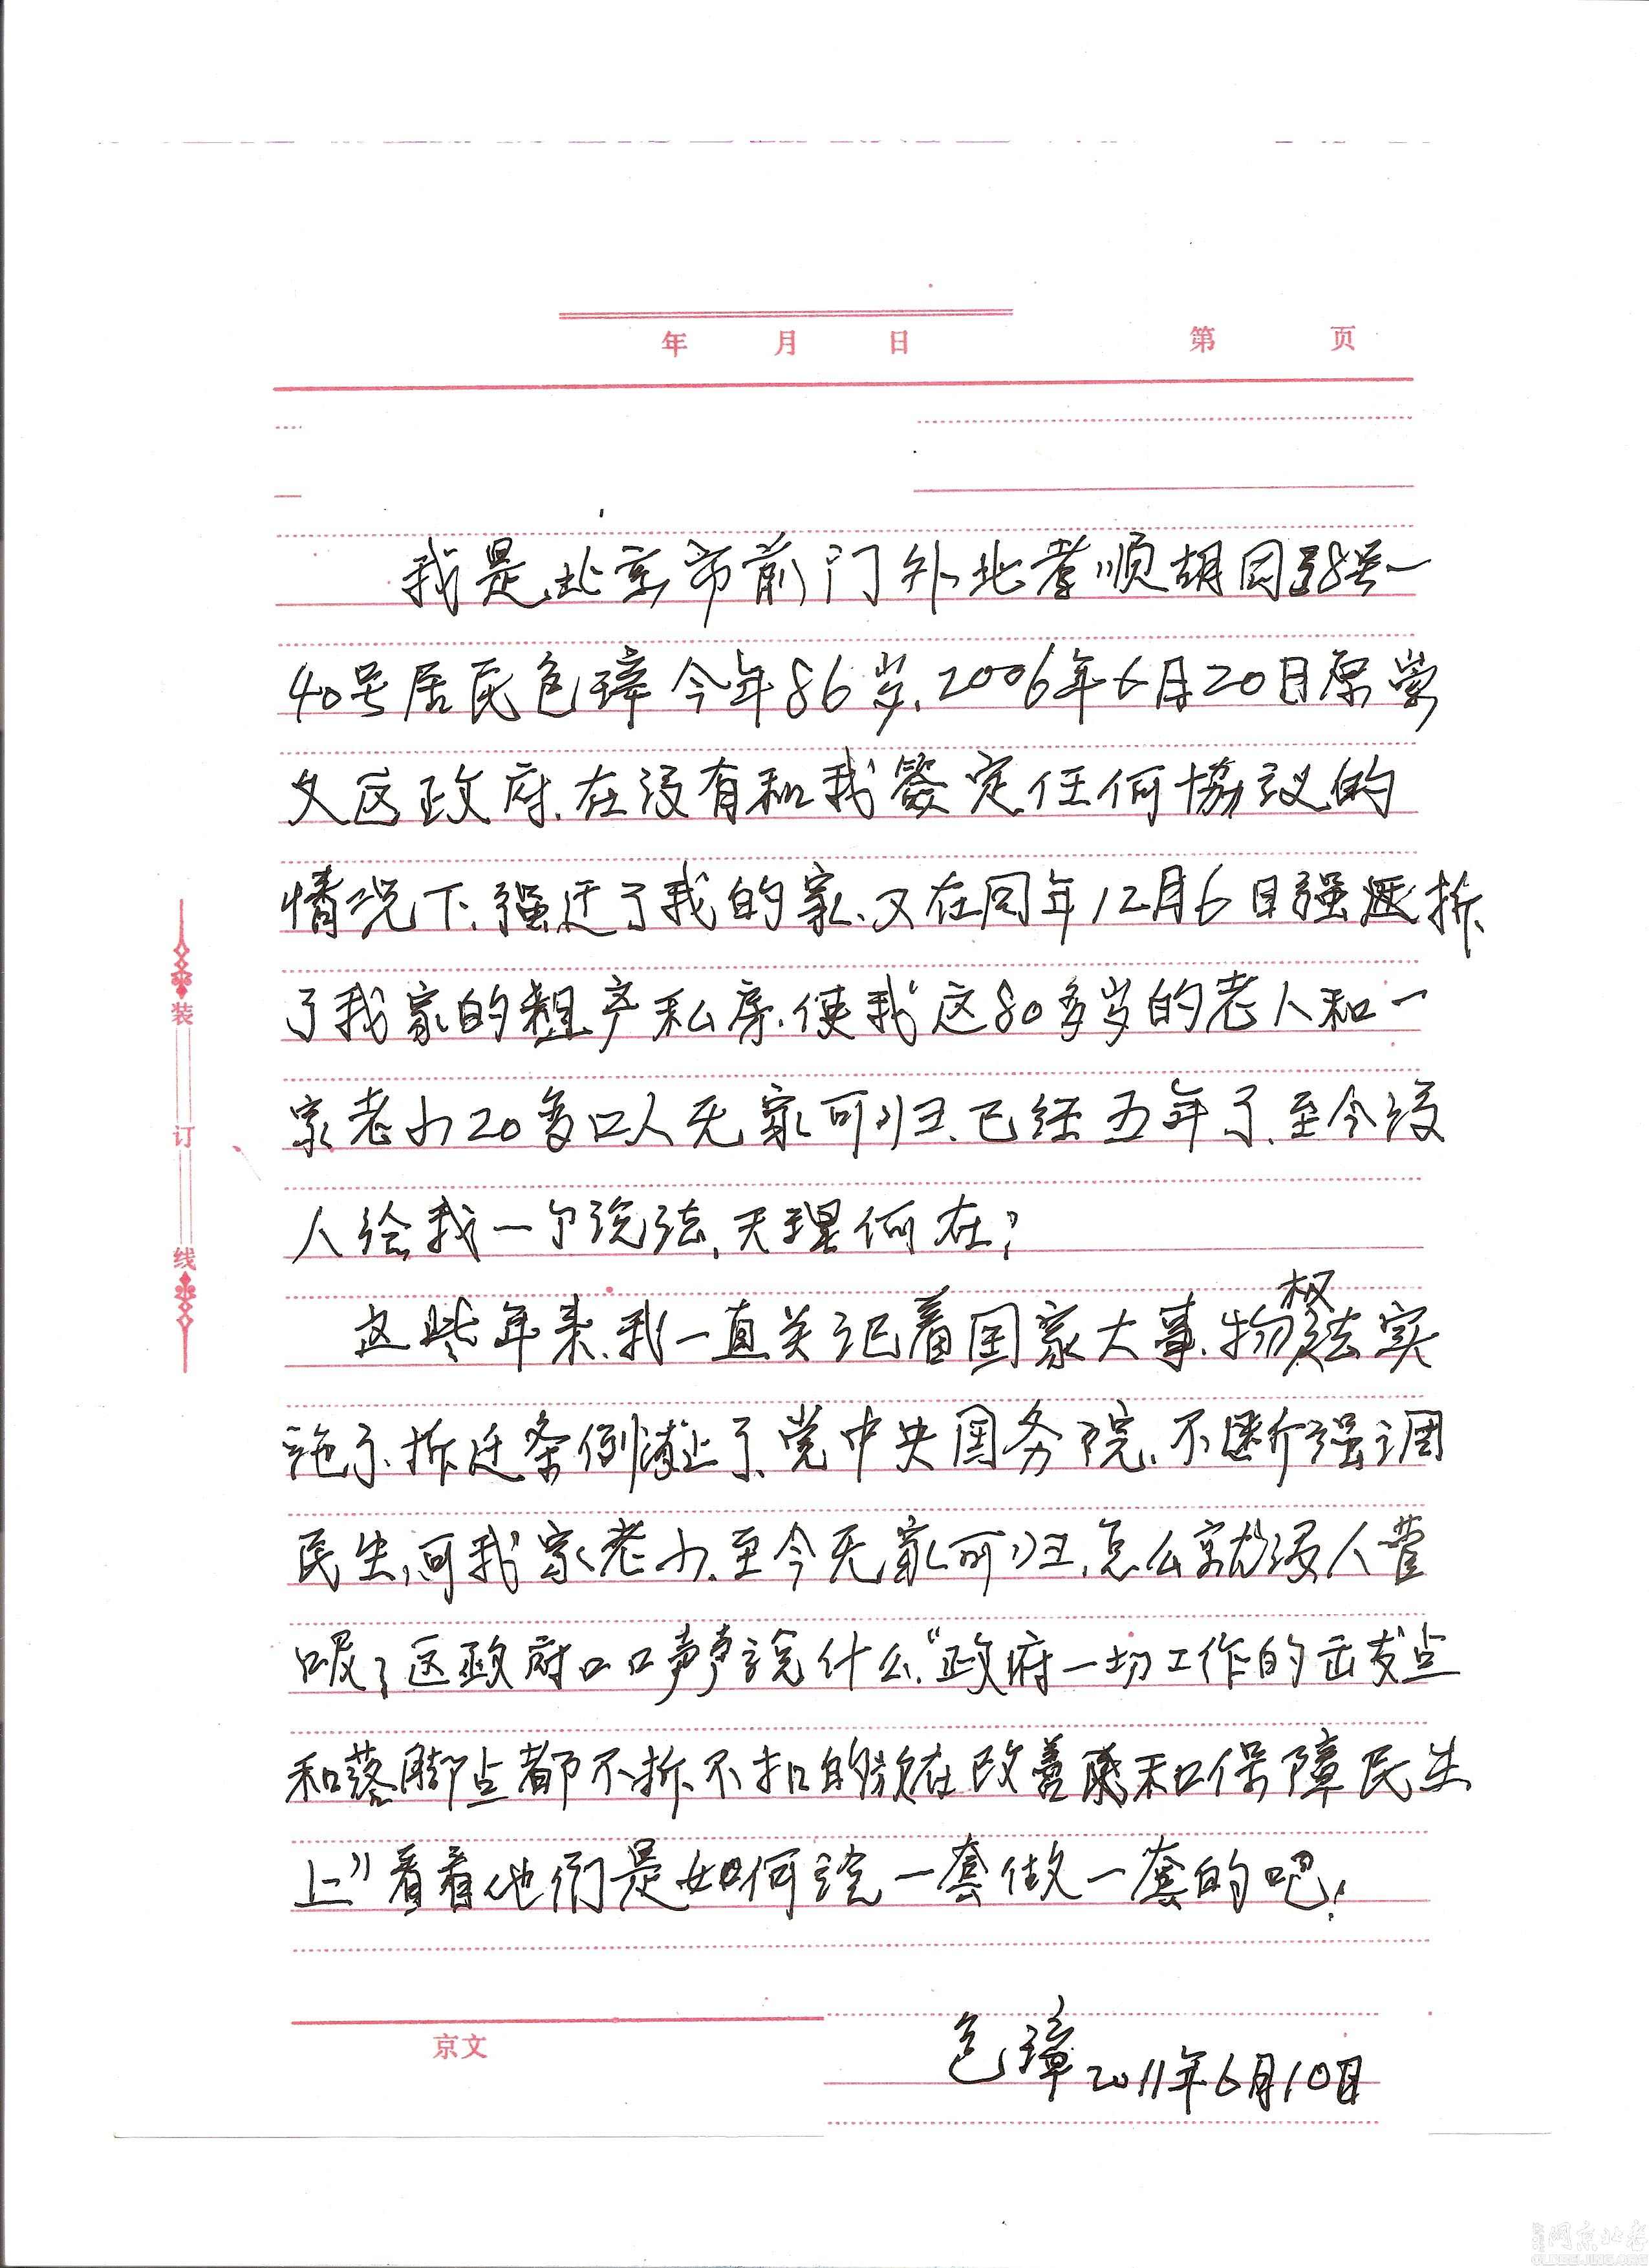 年 月 日 第 页
我是北京市前门外北孝顺胡同38号—
40号居民包璋今年86岁.2006年6月20日原崇
文区政府.在没有和我签定任何协议的
情况下.强迁了我的家.又在同年12月6日强拆
了我家的祖产私房.使我这80多岁的老人和一
家老小20多口人无家可归.已经五年了.至今没
人给我一个说法,天理何在?
这些年来.我一直关记着国家大事.物权法实
施了.拆迁条例废止了.党中央国务院.不断强调
民生,可我家老小.至今无家可归.怎么就没人管
呢?区政府口口声声说什么"政府一切工作的出发点
和落脚点都不折不扣的放在改善和保障民生
上"看看他们是如何说一套做一套的吧!
包璋2011年6月10日
京文
装订线